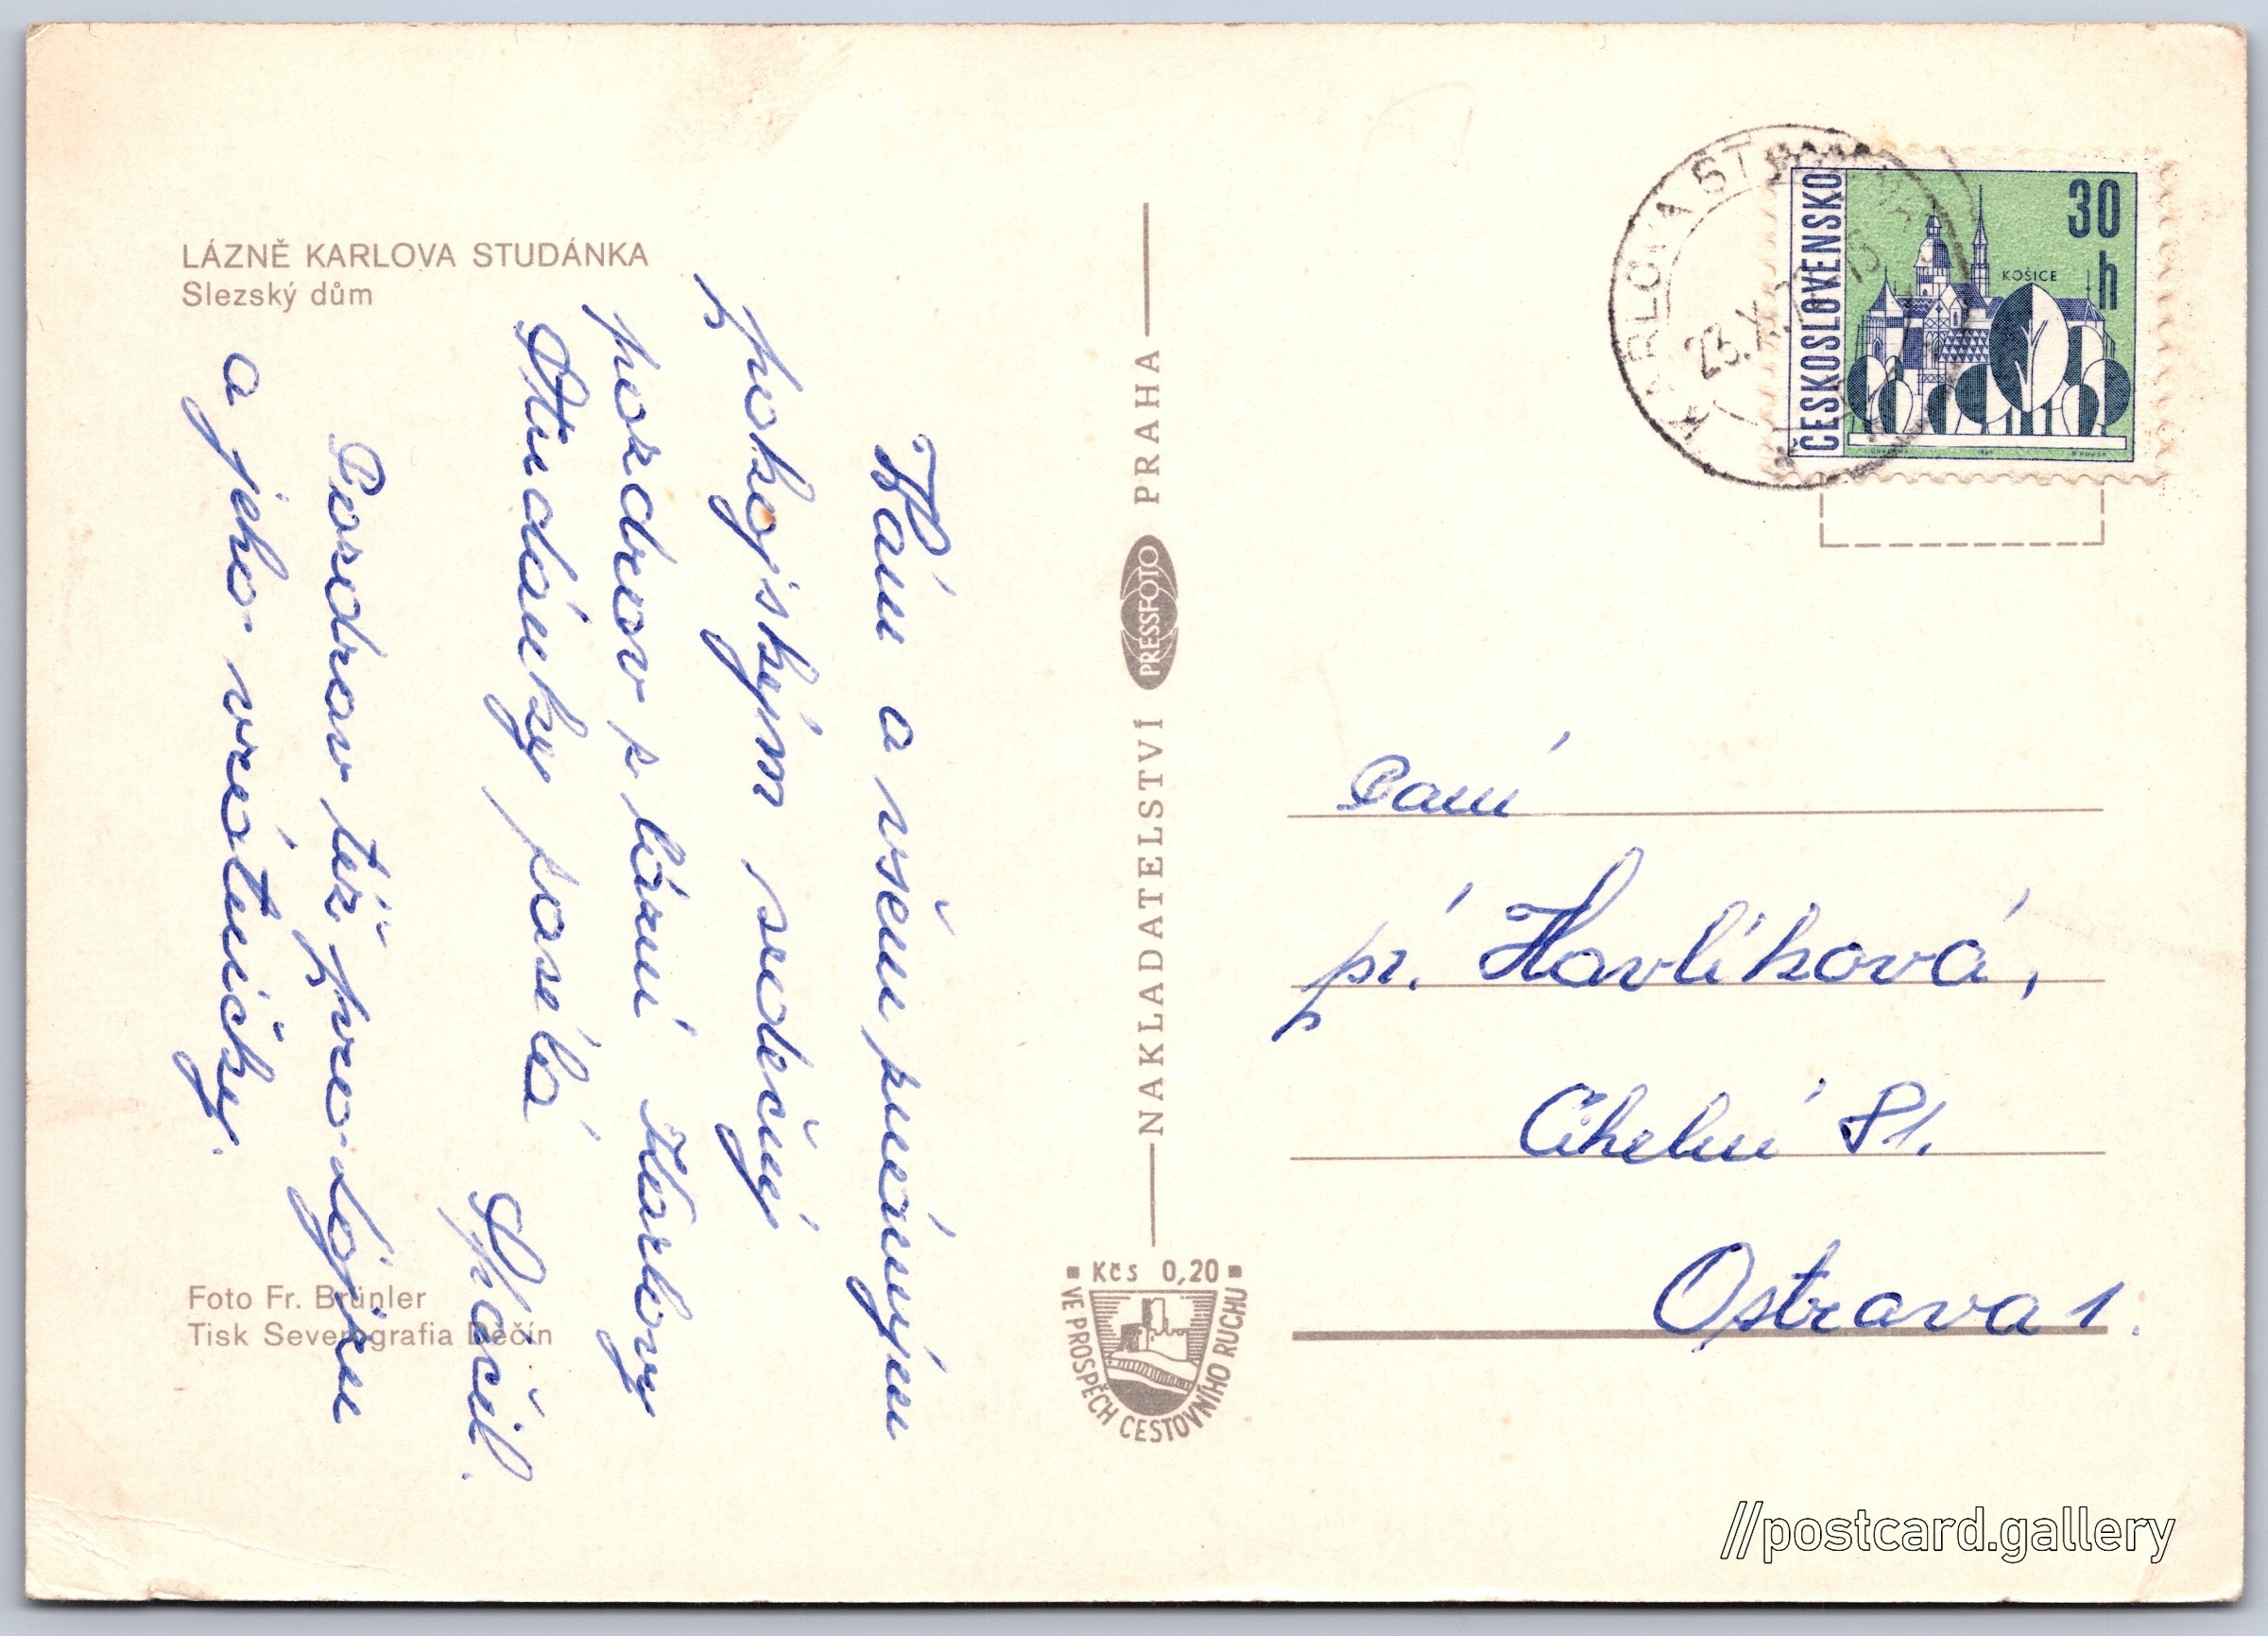 LÁZNĚ KARLOVA STUDÁNKA
Slezský dům
Vám a všem známým
pokojským srdečný
pozdrav z lázní Karlovy
Studánky posílá
Spáčil
Pozdrav též
a jeho vrátničky.
Foto Fr. Brünler
Tisk Severografia Děčín
NAKLADATELSTVÍ PRESSFOTO PRAHA
Kčs 0,20
VE PROSPĚCH CESTOVNÍHO RUCHU
KARLOVA ST
23.X.
ČESKOSLOVENSKO
30
h
KOŠICE
Paní
pí. Havlíková,
Cihelní 81.
Ostrava 1.
//postcard.gallery